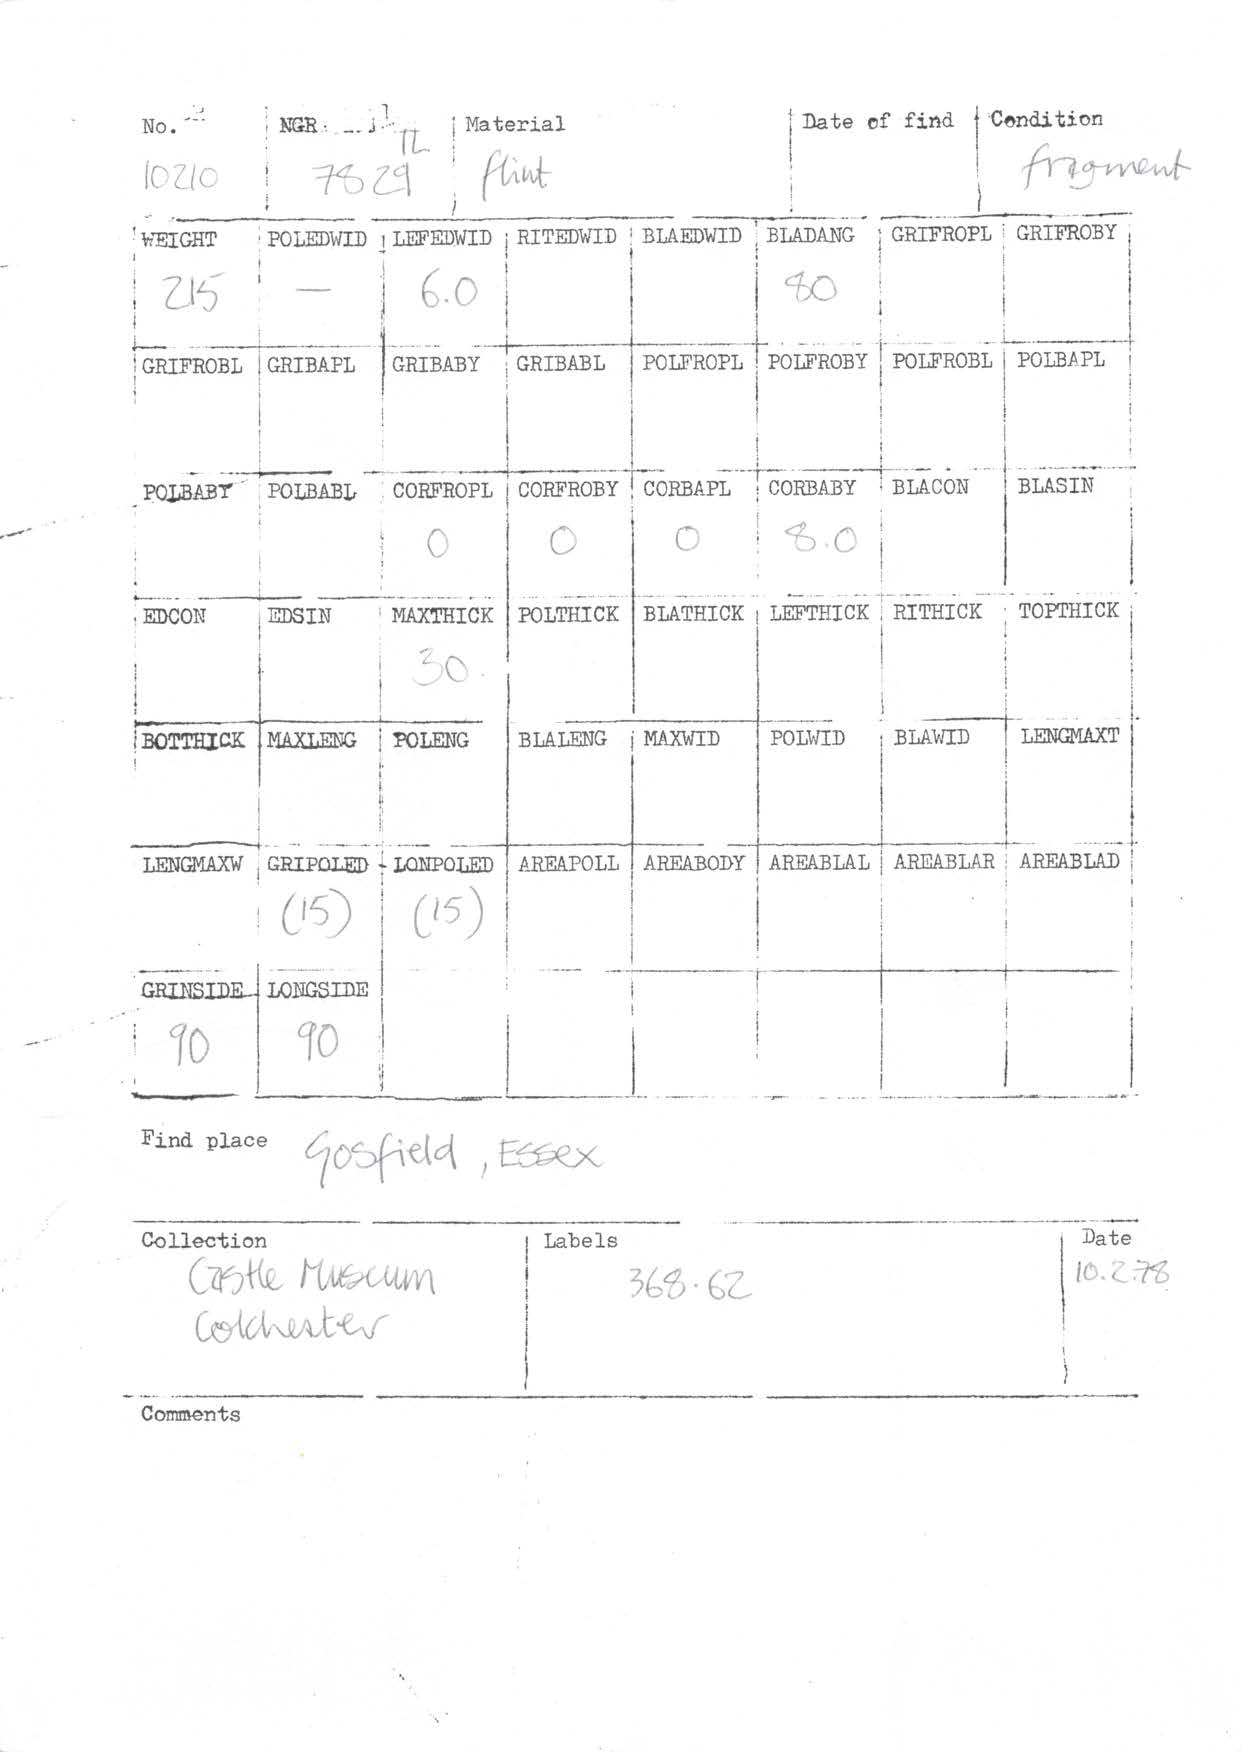 No. NGR Material Date of find Condition
10210 TL 7829 flint fragment
WEIGHT POLEDWID LEFEDWID RITEDWID BLAEDWID BLADANG GRIFROPL GRIFROBY
215 — 6.0 80
GRIFROBL GRIBAPL GRIBABY GRIBABL POLFROPL POLFROBY POLFROBL POLBAPL
POLBABY POLBABL CORFROPL CORFROBY CORBAPL CORBABY BLACON BLASIN
0 0 0 8.0
EDCON EDSIN MAXTHICK POLTHICK BLATHICK LEFTHICK RITHICK TOPTHICK
30
BOTTHICK MAXLENG POLENG BLALENG MAXWID POLWID BLAWID LENGMAXT
LENGMAXW GRIPOLED LONPOLED AREAPOLL AREABODY AREABLAL AREABLAR AREABLAD
(15) (15)
GRINSIDE LONGSIDE
90 90
Find place Gosfield, Essex
Collection Labels Date
Castle Museum 368.62 10.2.78
Colchester
Comments